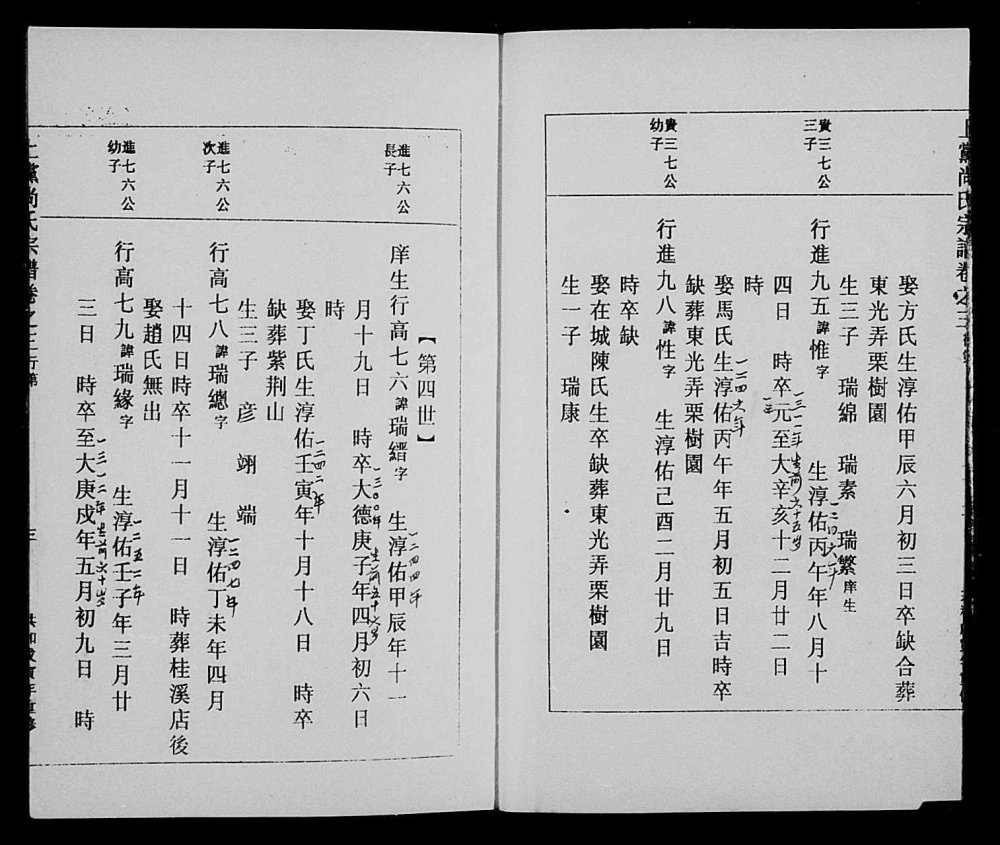 娶方氏生淳佑甲辰六月初三日卒缺合葬
東光弄栗樹園
生三子　瑞綿　瑞素　瑞繁庠生
貴三七公
三子
行進九五諱惟字　生淳佑丙午年八月十
一二四六年
四日　時卒元至大辛亥十二月廿二日
一三一一年生前六十五岁
時
娶馬氏生淳佑丙午年五月初五日吉時卒
一二四六年
缺葬東光弄栗樹園
貴三七公
幼子
行進九八諱性字　生淳佑己酉二月廿九日
時卒缺
娶在城陳氏生卒缺葬東光弄栗樹園
生一子　瑞康
【第四世】
進七六公
長子
庠生行高七六諱瑞縉字　生淳佑甲辰年十一
一二四四年
月十九日　時卒大德庚子年四月初六日
一三〇〇年生前五十六岁
時
娶丁氏生淳佑壬寅年十月十八日　時卒
一二四二年
缺葬紫荆山
生三子　彦　翊　端
進七六公
次子
行高七八諱瑞總字　生淳佑丁未年四月
一二四七年
十四日時卒十一月十一日　時葬桂溪店後
娶趙氏無出
進七六公
幼子
行高七九諱瑞緣字　生淳佑壬子年三月廿
一二五二年
三日　時卒至大庚戌年五月初九日　時
一三一二年生前六十岁
上黨尚氏宗譜卷之三行第
三
共和戊寅年重修